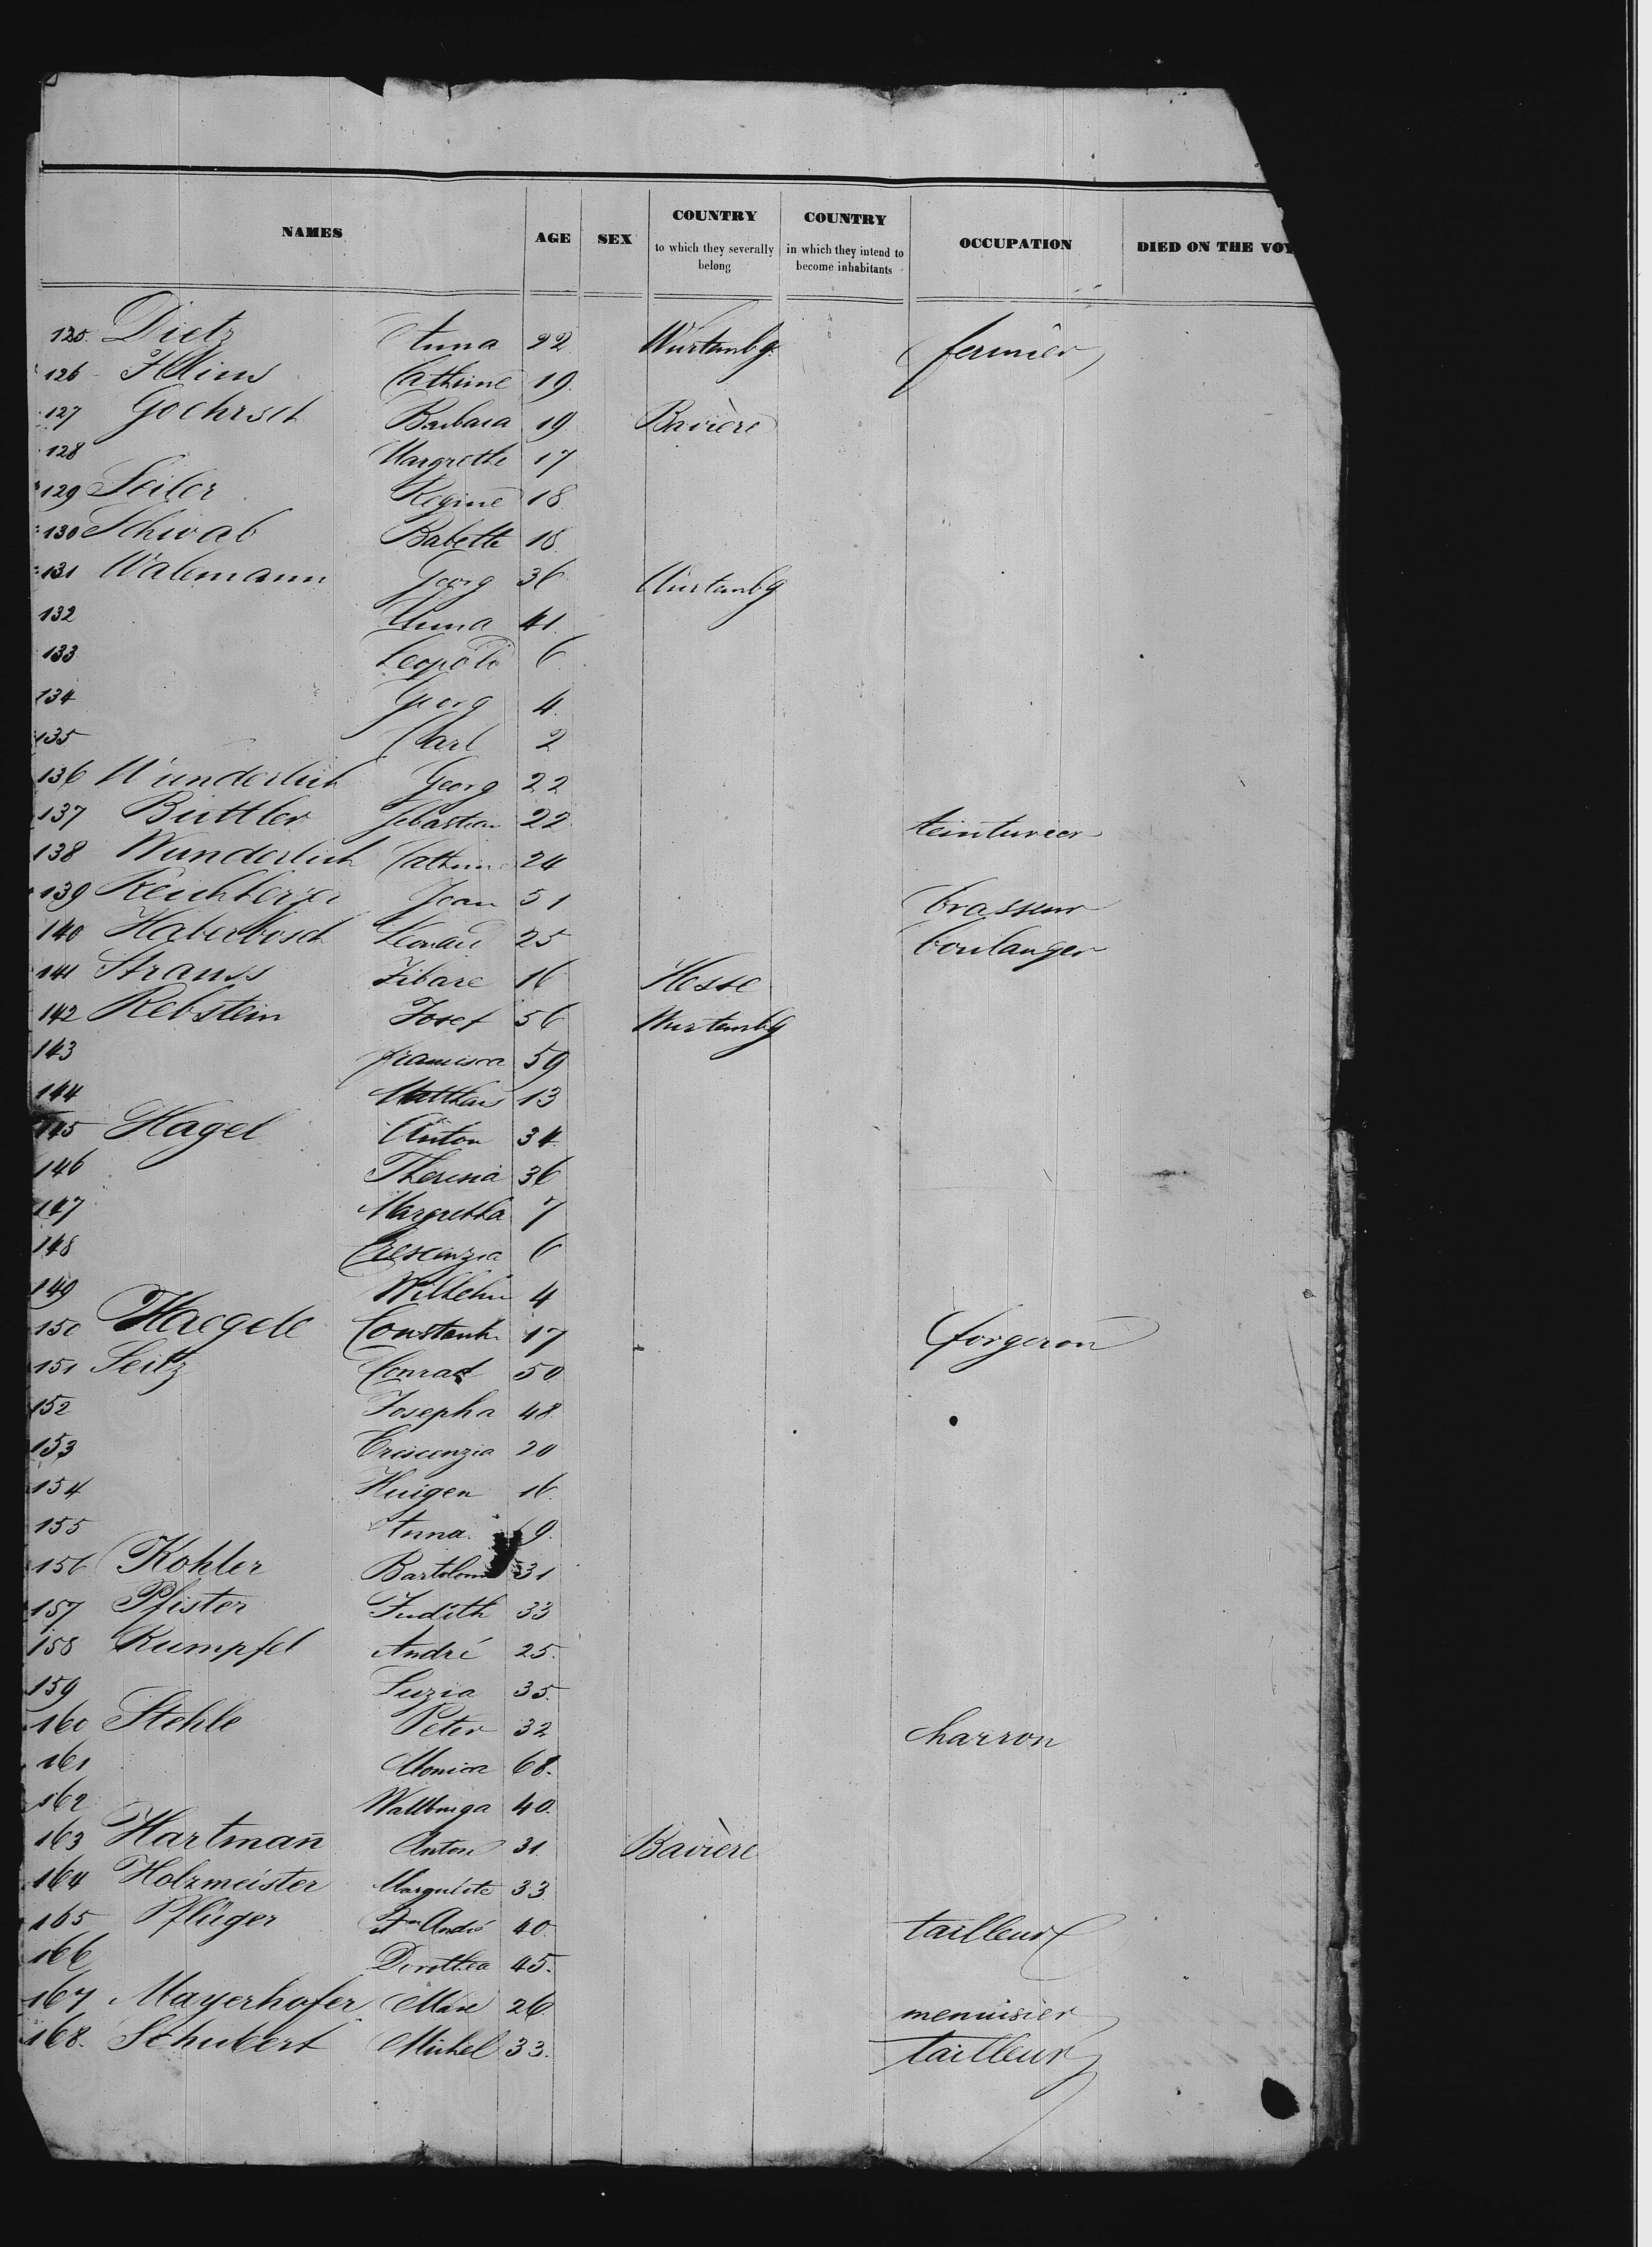 NAMES AGE SEX COUNTRY to which they severally belong COUNTRY in which they intend to become inhabitants OCCUPATION DIED ON THE VOY
125. Dietz Anna 22 Wurtembg. fermier
126 Cathrine 19.
127 Goehrsch Barbara 19 Bavière
128 Margrethe 17
129 Seiler Regine 18
130 Schwab Babette 18
131 Walemann Georg 36 Wurtembg
132 Anna 41.
133 Leopold 6
134 Georg 4.
135 Carl 2
136 Wunderlich Georg 22
137 Buttler Sebastian 22 teinturier
138 Wunderlich Cathrine 24
139 Jean 51 brasseur
140 Haberbosch Leonard 25 boulanger
141 Strauss 16 Hesse
142 Rebstein Josef 56 Wurtembg
143 francisca 59
144 Matthaus 13
145 Hagel Anton 34
146 Theresia 36
147 Margretha 7
148 Crescenzia 6
149 Wilhelm 4
150 Haegele Constantin 17 forgeron
151 Seitz Conrad 50
152 Josepha 48
153 Crescenzia 20
154 Huigen 16.
155 Anna 9.
156 Kohler Bartolome 31
157 Pfister Judith 33
158 Rumpfel André 25.
159 Luzia 35.
160 Stehle Peter 32 charron
161 Monica 68.
162 Wallburga 40.
163 Hartman̄ Anton 31. Bavière
164 Holzmeister Marguerite 33
165 Pflüger André 40. tailleur
166 Dorothea 45.
167 Mayerhofer 26 menuisier
168. Schubert Michel 33. tailleur